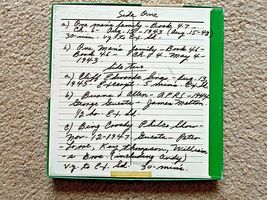 Side One
a) One man's family - Book 47 -
Ch. 6 - Aug - 15 - 1943 (Aug-15-43)
30-min. vg to Ex. Sd.
b) One Man's family - Book 46 -
Book - 46 - Ch # 4 - May 4 -
1943
Side Two
a) Cliff Edwards Sings - Aug. 13,
1945 - Excerpt - 5 mins - Ex Sd
b) Burns & Allen - APRI - 1944
George Guests - James Melton
1/2 hr. Ex Sd
c) Bing Crosby Philco Show -
Nov. 12 - 1947 Guests - Peter
Kay Thompson, William
s Bros (including Andy)
vg to Ex Sd. - 30-mins.